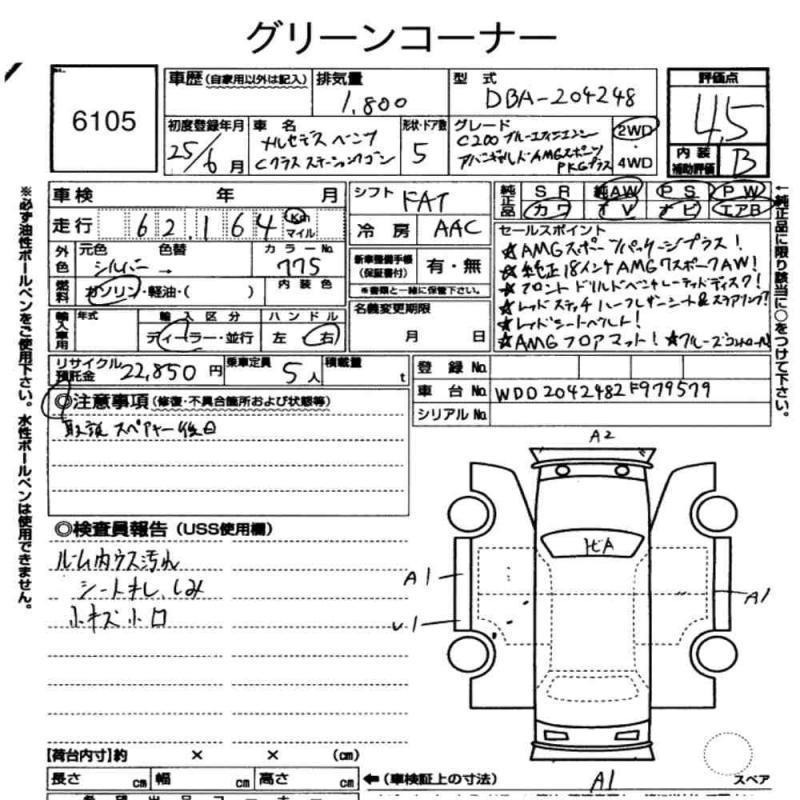 グリーンコーナー
6105
車歴 (自家用以外は記入)
排気量
1,800
型式
DBA-204248
評価点
4.5
内装
補助評価
B
初度登録年月
25/6月
車名
メルセデスベンツ
Cクラスステーションワゴン
形状・ドア数
5
グレード
C200ブルーエフィシェンシー
アバンギャルドAMGスポーツ
PKGプラス
2WD
4WD
車検 年 月
シフト
FAT
純正品
SR 純AW PS PW
カワ TV ナビ エアB
走行 62,164 Km
マイル
冷房
AAC
外色
元色
シルバー
色替
→
カラーNo.
775
燃料
ガソリン・軽油・( )
内装色
新車整備手帳
(保証書付)
有・無
※書類と一緒に保管下さい。
セールスポイント
★AMGスポーツパッケージプラス!
★純正18インチAMG7スポークAW!
★フロントドリルドベンチレーテッドディスク!
★レッドステッチハーフレザーシート&ステアリング!
★レッドシートベルト!
★AMGフロアマット!★クルーズコントロール
輸入車用
年式
輸入区分
ディーラー・並行
ハンドル
左 右
名義変更期限
月 日
リサイクル
預託金
22,850円
乗車定員
5人
積載量
t
登録No.
車台No.
WDD2042482F979579
シリアルNo.
◎注意事項 (修復・不具合箇所および状態等)
取説 スペアキー後日
◎検査員報告 (USS使用欄)
ルーム内ウス汚れ
シートキレ、しみ
小キズ小凹
A2
ヒA
A1
U1
A1
A1
スペア
【荷台内寸】約 × × (cm)
長さ cm 幅 cm 高さ cm
←(車検証上の寸法)
※必ず油性ボールペンをご使用下さい。水性ボールペンは使用できません。
←純正品に限り該当に○をつけて下さい。